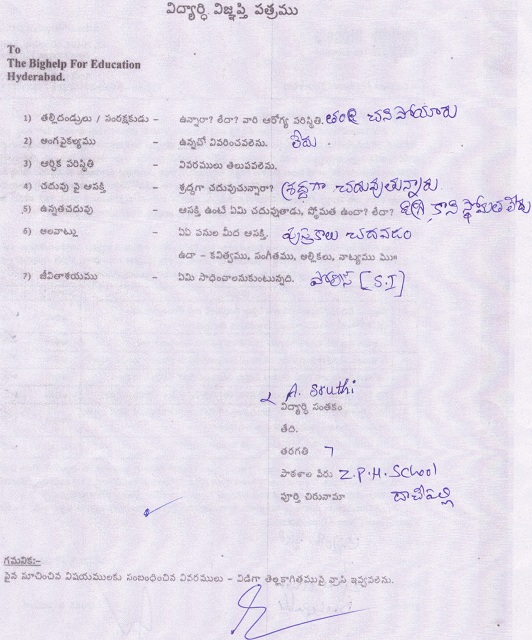 విద్యార్థి విజ్ఞప్తి పత్రము
To
The Bighelp For Education
Hyderabad.
1) తల్లిదండ్రులు / సంరక్షకుడు – ఉన్నారా? లేదా? వారి ఆరోగ్య పరిస్థితి. తండ్రి చనిపోయారు
2) అంగవైకల్యము – ఉన్నచో వివరించవలెను. లేదు
3) ఆర్థిక పరిస్థితి – వివరములు తెలుపవలెను.
4) చదువు పై ఆసక్తి – శ్రద్ధగా చదువుచున్నారా? శ్రద్దగా చదువుతున్నారు
5) ఉన్నతచదువు – ఆసక్తి ఉంటే ఏమి చదువుతాడు, స్తోమత ఉందా? లేదా? కాని స్థోమత లేదు
6) అలవాట్లు – ఏఏ పనుల మీద ఆసక్తి. పుస్తకాలు చదవడం
ఉదా – కవిత్వము, సంగీతము, అల్లికలు, నాట్యము ము॥
7) జీవితాశయము – ఏమి సాధించాలనుకుంటున్నది. పోలీస్ [S.I]
A. Sruthi
విద్యార్థి సంతకం
తేది.
తరగతి 7
పాఠశాల పేరు Z.P.H. School
పూర్తి చిరునామా దాచేపల్లి
గమనిక:-
పైన సూచించిన విషయములకు సంబంధించిన వివరములు – విడిగా తెల్లకాగితముపై వ్రాసి ఇవ్వవలెను.